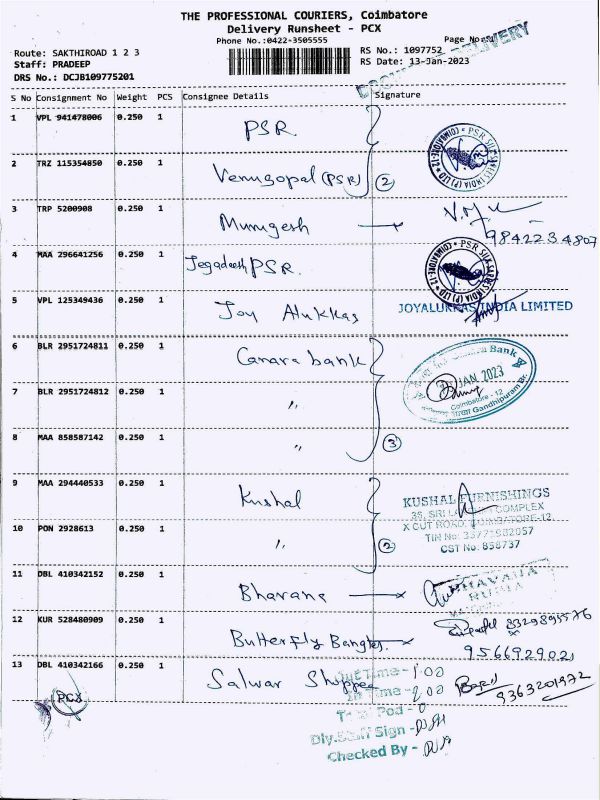 THE PROFESSIONAL COURIERS, Coimbatore
Delivery Runsheet - PCX
Phone No.:0422-3505555
Page No:
DELIVERY
Route: SAKTHIROAD 1 2 3
RS No.: 1097752
Staff: PRADEEP
RS Date: 13-Jan-2023
DRS No.: DCJB109775201
S No Consignment No Weight PCS Consignee Details Signature
1 VPL 941478006 0.250 1 PSR
2 TRZ 115354850 0.250 1 Venugopal (PSR) 2
PSR SILK SAREES INDIA (P) LTD COIMBATORE-12
3 TRP 5200908 0.250 1 Murugesh
9842234807
4 MAA 296641256 0.250 1 Jegadeesh PSR.
PSR SILK SAREES INDIA (P) LTD COIMBATORE-12
5 VPL 125349436 0.250 1 Joy Alukkas
JOYALUKKAS INDIA LIMITED
6 BLR 2951724811 0.250 1 Canara bank
7 BLR 2951724812 0.250 1 "
8 MAA 858587142 0.250 1 " 3
Canara Bank
JAN 2023
Coimbatore - 12
Gandhipuram Br.
9 MAA 294440533 0.250 1 Kushal
KUSHAL FURNISHINGS
COMPLEX
X CUT ROAD, COIMBATORE-12
TIN No: 33771982057
CST No: 858737
10 PON 2928613 0.250 1 " 2
11 DBL 410342152 0.250 1 Bhavana
12 KUR 528480909 0.250 1 Butterfly Bangles
9566929021
13 DBL 410342166 0.250 1 Salwar Shoppee
9363201972
PCX
Out Time - 1.00
In Time - 2.00
Total Pod - 0
Dly.Staff Sign -
Checked By -